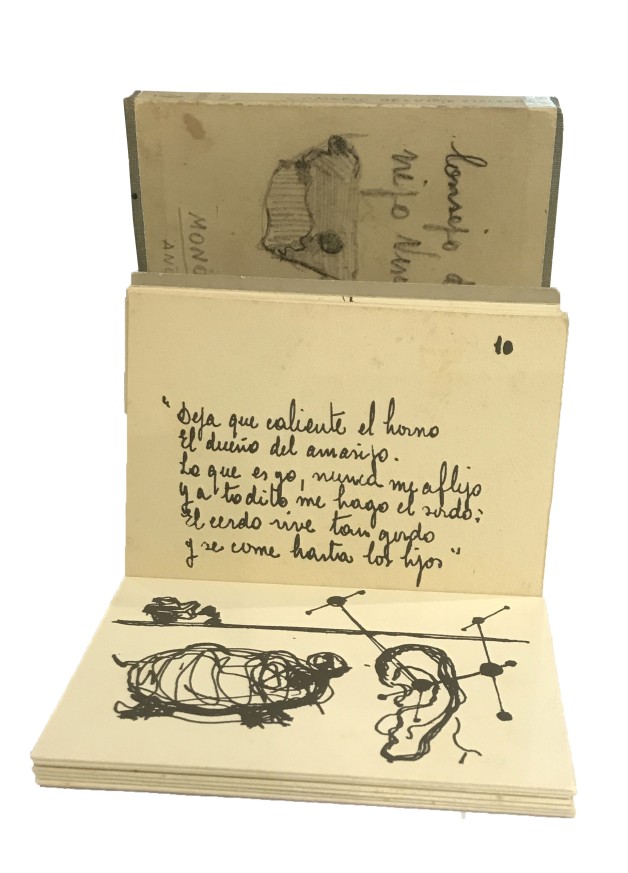 Consejo
viejo
10
"Deja que caliente el horno
El dueño del amasijo.
Lo que es yo, nunca me aflijo
y a todito me hago el sordo;
El cerdo vive tan gordo
y se come hasta los hijos"